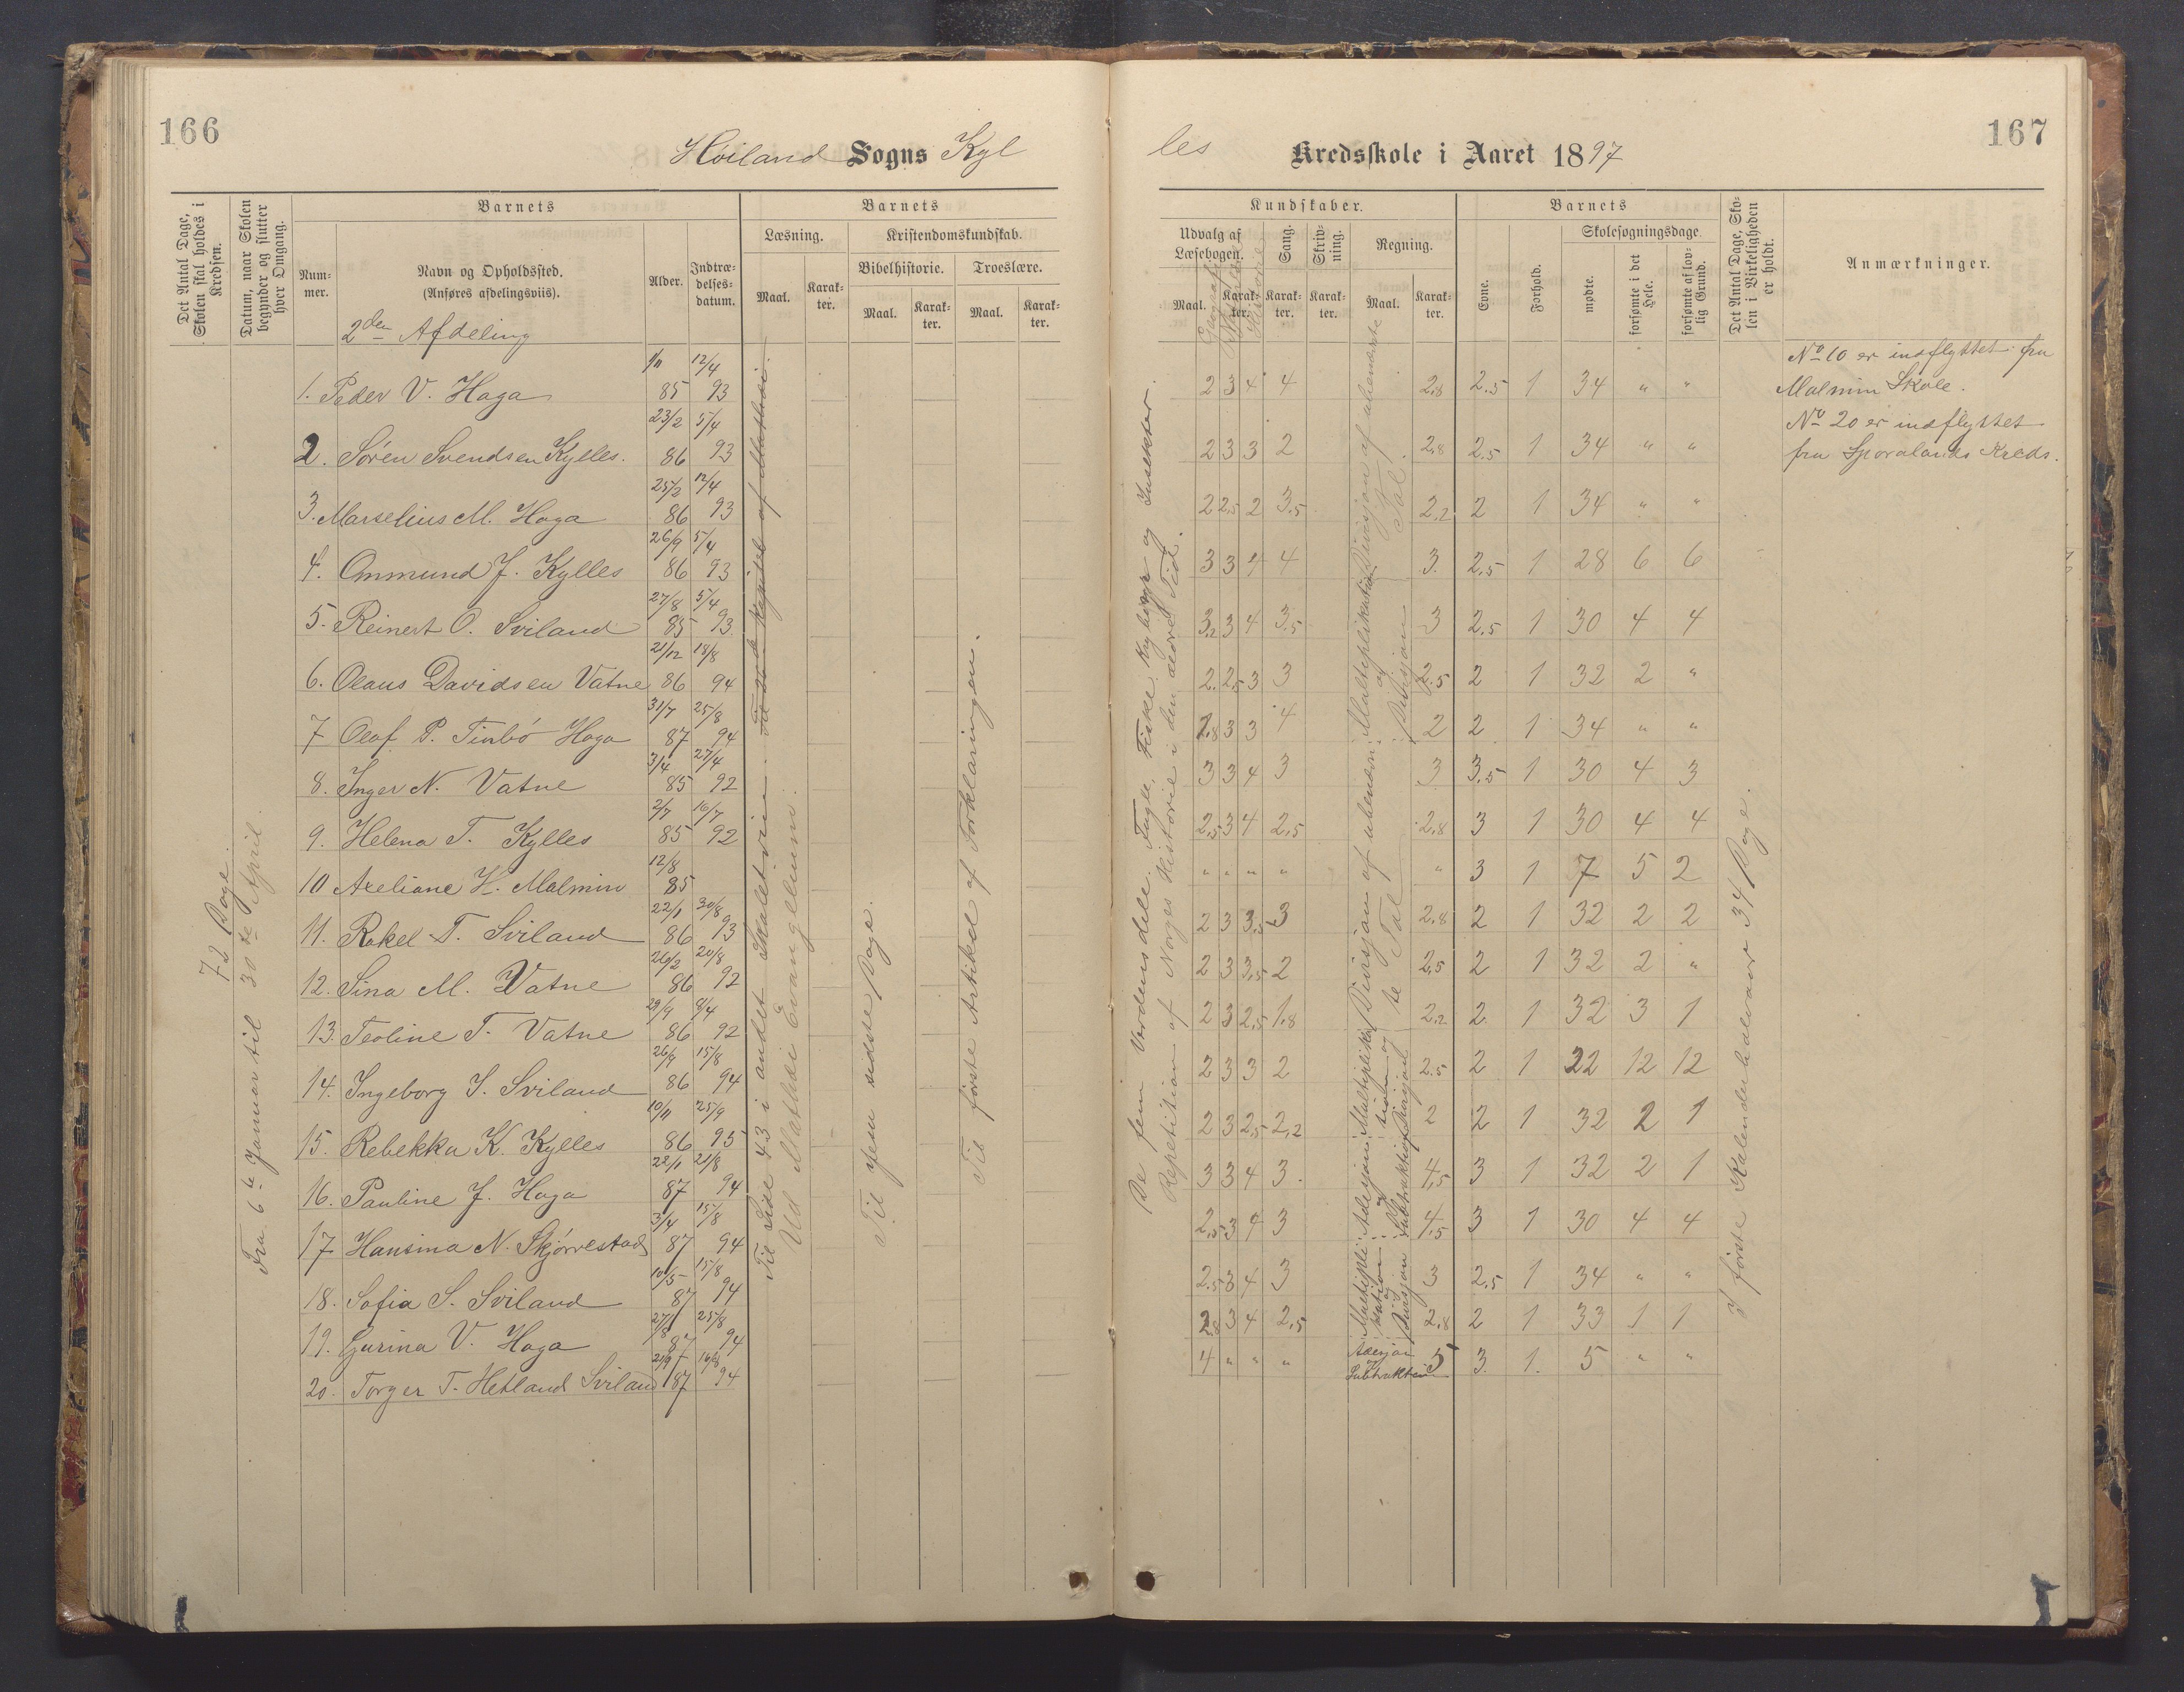 166
Høiland Sogns Kyl
Det Antal Dage, Skolen skal holdes i Kredsen.
Datum, naar Skolen begynder og slutter hver Omgang.
Barnets
Barnets
Num-mer.
Navn og Opholdssted.
(Anføres afdelingsviis).
Alder.
Indtræ-delses-datum.
Læsning.
Kristendomskundskab.
Bibelhistorie.
Troeslære.
Maal.
Karak-ter.
Maal.
Karak-ter.
Maal.
Karak-ter.
2den Afdeling
1. Peder V. Haga 1/11 85 12/4 93
2. Sören Svendsen Kylles. 23/2 86 5/4 93
3. Marselius M. Haga 25/2 86 12/4 93
4. Onmund J. Kylles 26/9 86 5/4 93
5. Reinert O. Sviland 27/8 85 5/4 93
6. Olaus Davidsen Vatne 21/12 86 18/8 94
7 Olaf P. Tinbö Haga 31/7 87 25/8 94
8. Inger N. Vatne 3/4 85 27/4 92
9. Helena T. Kylles 2/7 85 16/7 92
10 Axeliane H. Malmin 12/8 85
11. Rakel T. Sviland 22/1 86 30/8 93
12. Sina M. Vatne 26/2 86 20/8 92
13. Teoline T. Vatne 29/9 86 9/4 92
14. Ingeborg S. Sviland 26/9 86 15/8 94
15. Rebekka K. Kylles 10/11 86 25/9 95
16. Pauline J. Haga 22/1 87 21/8 94
17 Hansina N. Skjörrestad 3/4 87 15/8 94
18. Sofia S. Sviland 10/5 87 15/8 94
19. Gurina V. Haga 27/8 87 25/8 94
20. Torger T. Hetland Sviland 21/9 87 16/8 94
72 Dage.
Fra 6te Januar til 30te April.
Til Side 43 i andet Skoletrin.
Ud Mathæi Evangelium.
Til Jesu sidste Dage.
Til første Artikel af Forklaringen.
les Kredsskole i Aaret 1897
167
Kundskaber.
Barnets
Det Antal Dage, Sko-len i Virkeligheden er holdt.
Anmærkninger.
Udvalg af Læsebogen.
Sang.
Skriv-ning.
Regning.
Evne.
Forhold.
Skolesøgningsdage
Maal.
Karak-ter.
Karak-ter.
Karak-ter.
Maal.
Karak-ter.
mødte.
forsømte i det Hele.
forsømte af lov-lig Grund.
Geografi
Historie
2 3 4 4 2,8 2.5 1 34 " "
2 3 3 2 2,8 2.5 1 34 " "
2 2,5 2 3,5 2,2 2 1 34 " "
3 3 4 4 3. 2,5 1 28 6 6
3,2 3 4 3,5 3 2,5 1 30 4 4
2. 2,5 3 3 2,5 2 1 32 2 "
1.8 3 3 4 2 2 1 34 " "
3 3 4 3 3 3.5 1 30 4 3
2,5 3 4 2,5 2,8 3 1 30 4 4
" " " " " 3 1 7 5 2
2 3 3,5 3 2,8 2 1 32 2 2
2 3 3,5 2 2,5 2 1 32 2 "
2 3 2,5 1,8 2,2 2 1 32 3 1
2 3 3 2 2,5 2 1 22 12 12
2 3 2,5 2,2 2 2 1 32 2 1
3 3 4 3. 4,5 3 1 32 2 1
2,5 3 4 3 4,5 3 1 30 4 4
2,5 3 4 3 3 2,5 1 34 " "
2,8 3 4 2,5 2,8 2 1 33 1 1
4 " " " 5 3. 1. 5 " "
De fem Verdensdele. Fugle, Fiske, Krybdyr og Insekter.
Repetition af Norges Historie i den ældre Tid.
Adisjon og Subtraktion
I første Kalenderhalvaar 34 Dage.
No 10 er indflyttet fra
Malmin Skole.
No 20 er indflyttet
fra Sporalands Kreds.